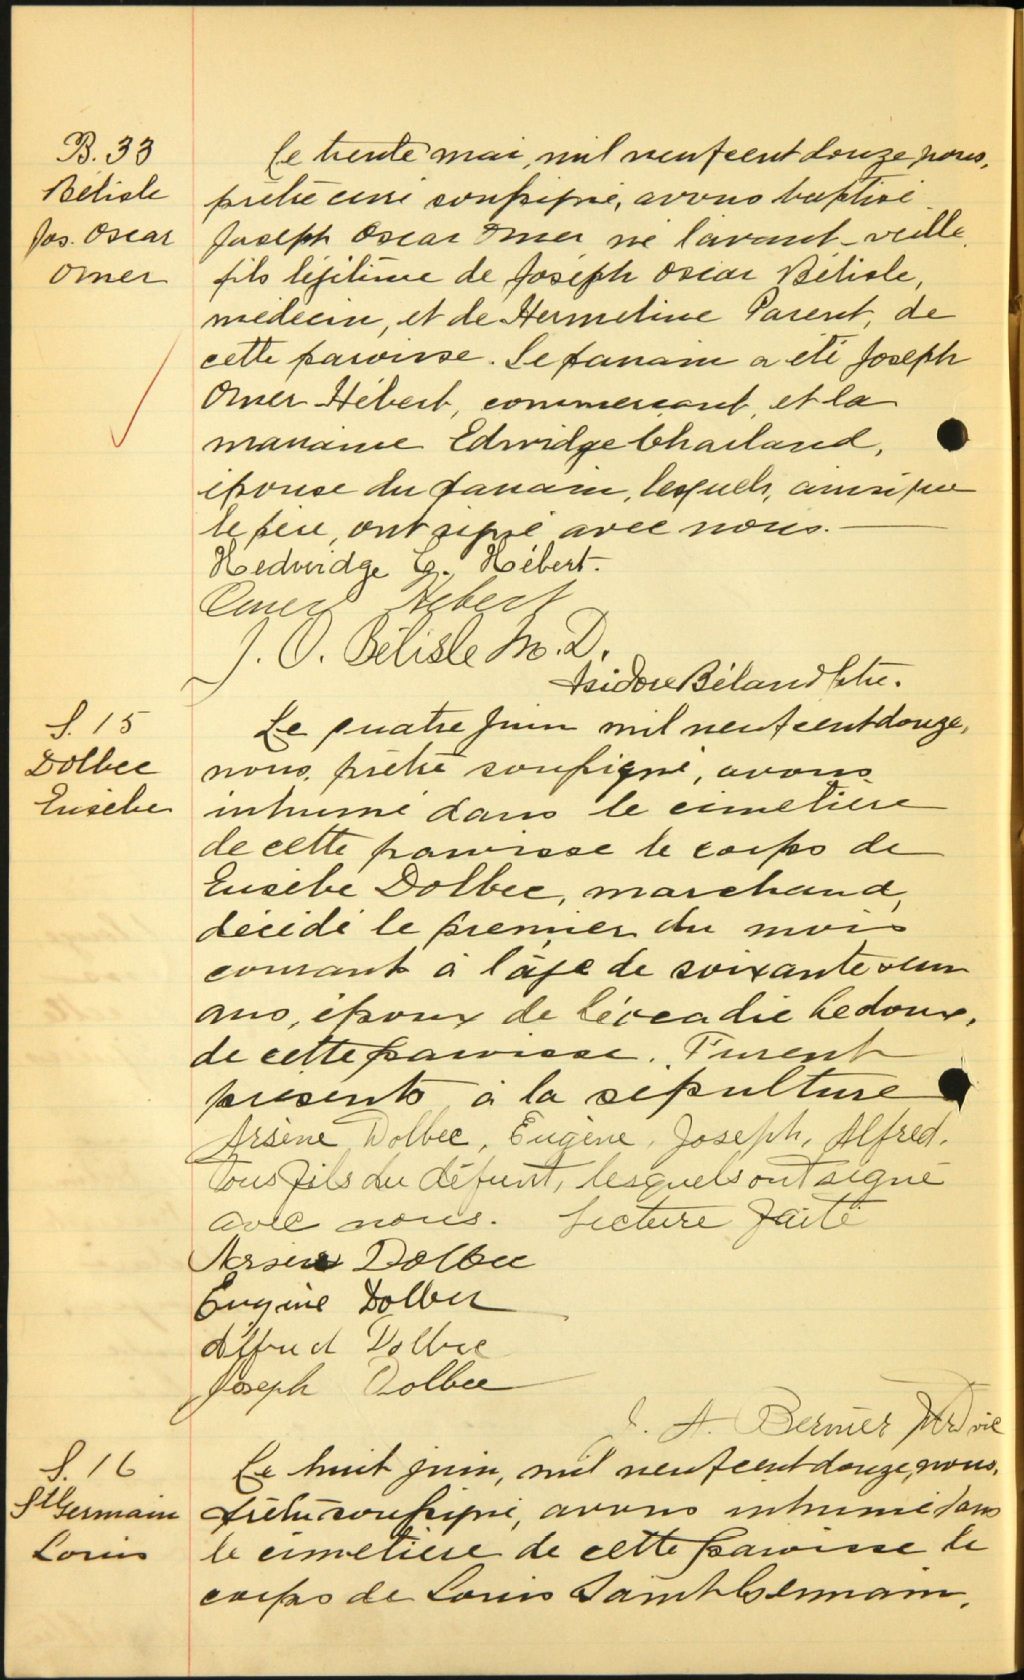 B. 33
Bélisle
Jos. Oscar
Omer
Le trente mai, mil neuf cent douze, nous,
prêtre curé soussigné, avons baptisé
Joseph Oscar Omer né l'avant-veille,
fils légitime de Joseph Oscar Bélisle,
médecin, et de Hermeline Parent, de
cette paroisse. Le parrain a été Joseph
Omer Hébert, commerçant, et la
marraine Edwidge Charland,
épouse du parrain, lesquels, ainsi que
le père, ont signé avec nous.
Hedwidge C. Hébert.
Omer Hebert
J. O. Bélisle M. D.
Isidore Béland Ptre.
S. 15
Dolbec
Eusèbe
Le quatre juin mil neuf cent douze,
nous, prêtre soussigné, avons
inhumé dans le cimetière
de cette paroisse le corps de
Eusèbe Dolbec, marchand,
décédé le premier du mois
courant à l'âge de soixante & un
ans, époux de Léocadie Ledoux,
de cette paroisse. Furent
présents à la sépulture
Arsène Dolbec, Eugène, Joseph, Alfred,
tous fils du défunt, lesquels ont signé
avec nous. Lecture faite
Arsène Dolbec
Eugène Dolbec
Alfred Dolbec
Joseph Dolbec
J. A. Bernier Ptre vic
S. 16
St Germain
Louis
Le huit juin, mil neuf cent douze, nous,
prêtre soussigné, avons inhumé dans
le cimetière de cette paroisse le
corps de Louis Saint Germain,